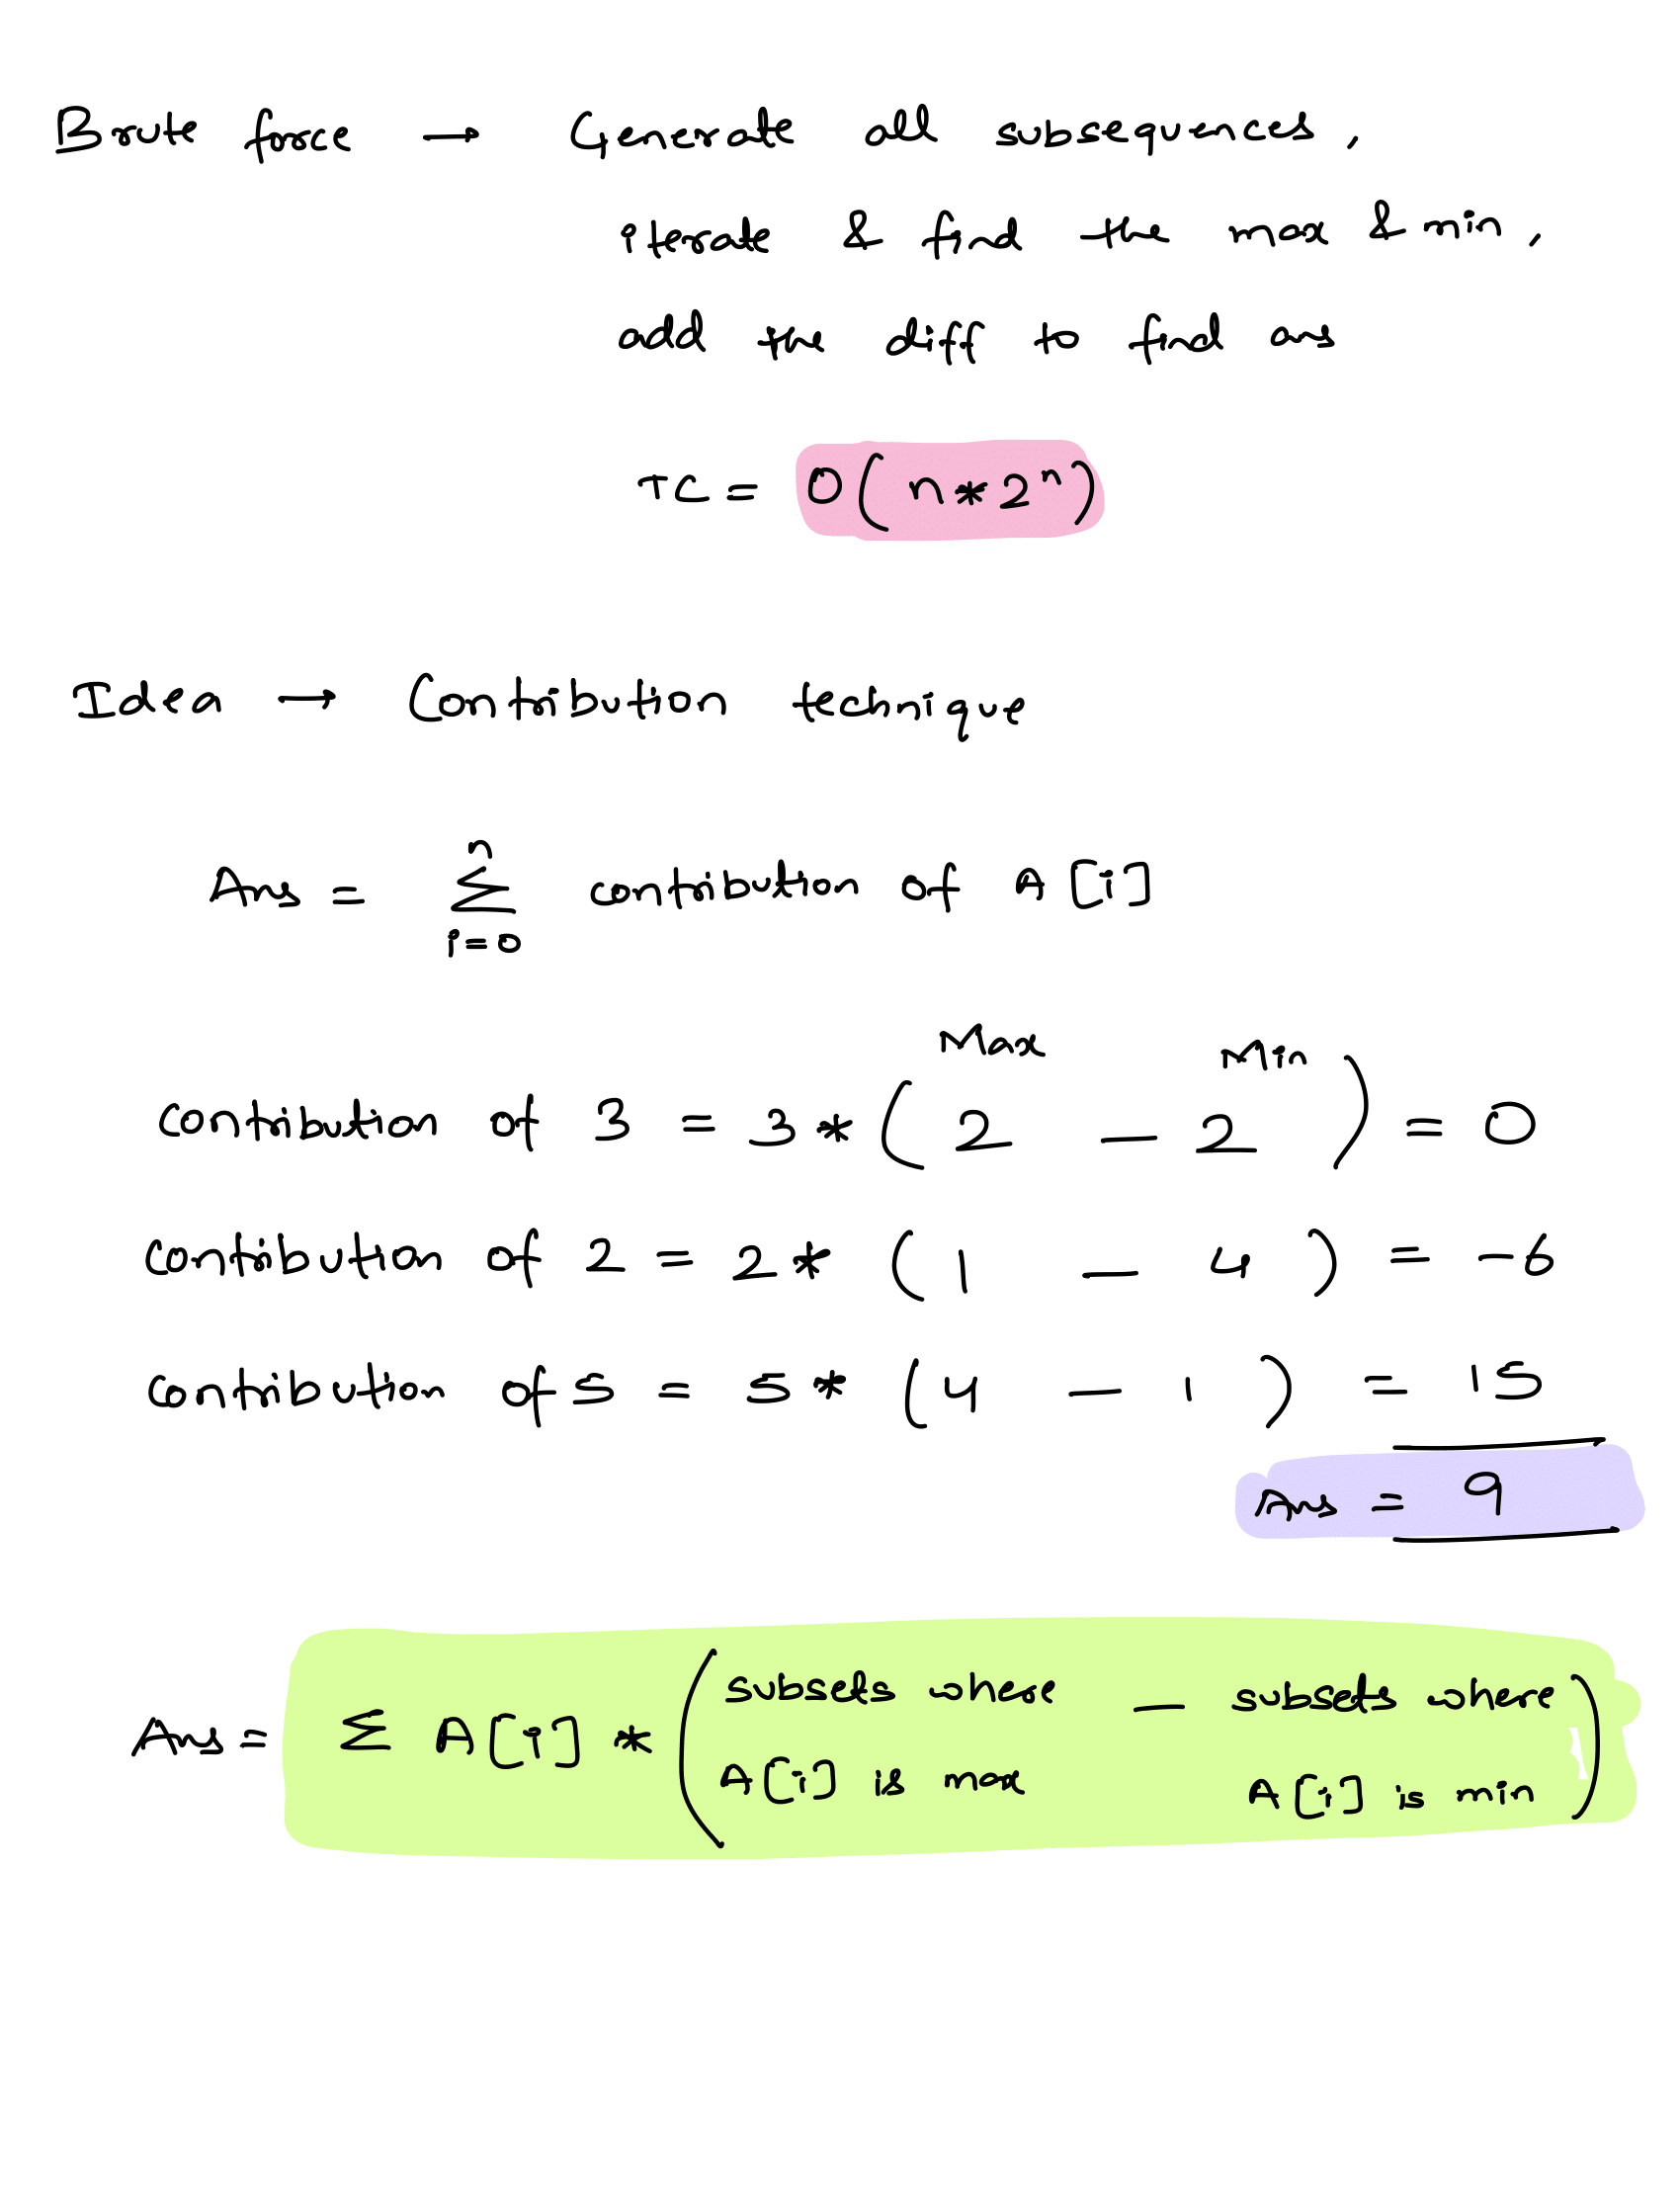 Brute force → Generate all subsequences,
iterate & find the max & min,
add the diff to find ans
TC = O(n*2ⁿ)
Idea → Contribution technique
n
Ans = Σ contribution of A[i]
i=0
Max Min
contribution of 3 = 3*(2 - 2) = 0
contribution of 2 = 2*(1 - 4) = -6
contribution of 5 = 5*(4 - 1) = 15
Ans = 9
subsets where — subsets where
Ans = Σ A[i] * ( )
A[i] is max A[i] is min